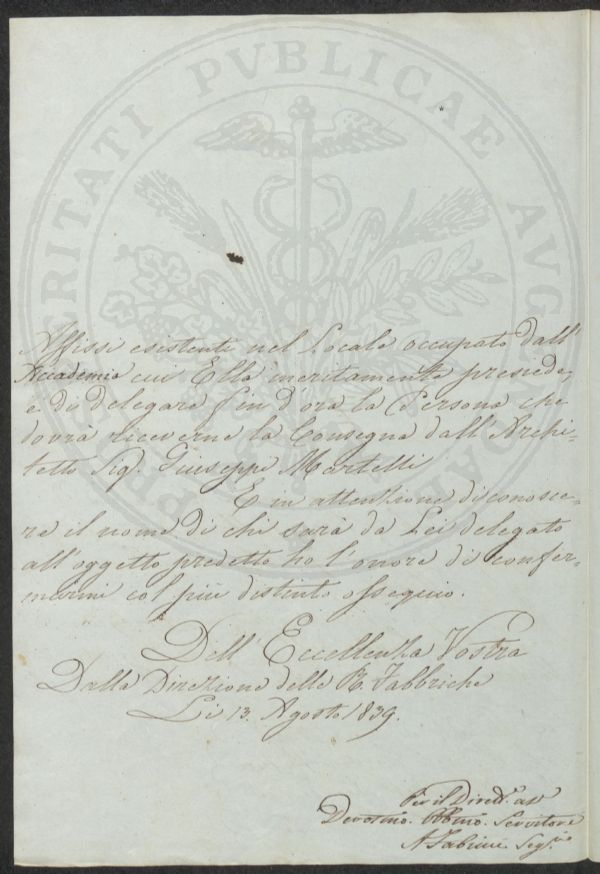 Affissi esistenti nel Locale occupato dall'
Accademia cui Ella meritamente presiede,
e di delegare fin d'ora la Persona che
dovrà riceverne la Consegna dall'Archi-
tetto Sig. Giuseppe Martelli
E in attenzione di conosce-
re il nome di chi sarà da Lei delegato
all'oggetto predetto ho l'onore di confer-
marmi col più distinto ossequio.
Dell'Eccellenza Vostra
Dalla Direzione delle R. Fabbriche
Li 13. Agosto 1839.
Per il Dirett. as
Devotmo. Obbmo. Servitore
A Fabbrini Seg.
PROSPERITATI PVBLICAE AVGENDAE